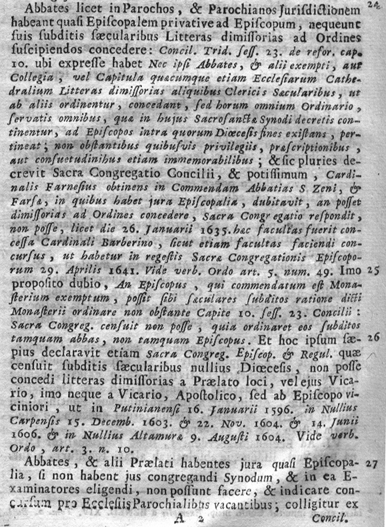 Abbates licet in Parochos, & Parochianos Jurisdictionem 24
habeant quasi Episcopalem privative ad Episcopum, nequeunt
suis subditis sæcularibus Litteras dimissorias ad Ordines
suscipiendos concedere: Concil. Trid. sess. 23. de refor. cap.
10. ubi expresse habet Nec ipsi Abbates, & alii exempti, aut
Collegia, vel Capitula quæcumque etiam Ecclesiarum Cathe-
dralium Litteras dimissorias aliquibus Clericis Sæcularibus, ut
ab aliis ordinentur, concedant, sed horum omnium Ordinario,
servatis omnibus, quæ in hujus Sacrosanctæ Synodi decretis con-
tinentur, ad Episcopos intra quorum Diœcesis fines existant, per-
tineat; non obstantibus quibusvis privilegiis, præscriptionibus,
aut consuetudinibus etiam immemorabilibus; & sic pluries de-
crevit Sacra Congregatio Concilii, & potissimum, Cardi-
nalis Farnesius obtinens in Commendam Abbatias S. Zeni, &
Farfæ, in quibus habet jura Episcopalia, dubitavit, an posset
dimissorias ad Ordines concedere, Sacra Congregatio respondit,
non posse, licet die 26. Januarii 1635. hæc facultas fuerit con-
cessa Cardinali Barberino, sicut etiam facultas faciendi con-
cursus, ut habetur in regestis Sacræ Congregationis Episcopo-
rum 29. Aprilis 1641. Vide verb. Ordo art. 5. num. 49. Imo 25
proposito dubio, An Episcopus, qui commendatum est Mona-
sterium exemptum, possit sibi sæculares subditos ratione dicti
Monasterii ordinare non obstante Capite 10. sess. 23. Concilii:
Sacra Congreg. censuit non posse, quia ordinaret eos subditos
tamquam abbas, non tamquam Episcopus. Et hoc ipsum sæ- 26
pius declaravit etiam Sacra Congreg. Episcop. & Regul. quæ
censuit subditis sæcularibus nullius Diœcesis, non posse
concedi litteras dimissorias a Prælato loci, vel ejus Vica-
rio, imo neque a Vicario, Apostolico, sed ab Episcopo vi-
ciniori, ut in Putinianensi 16. Januarii 1596. in Nullius
Carpensis 15. Decemb. 1603. & 22. Nov. 1604. & 14. Junii
1606. & in Nullius Altamuræ 9. Augusti 1604. Vide verb.
Ordo, art. 3. n. 10.
Abbates, & alii Prælati habentes jura quasi Episcopa- 27
lia, si non habent jus congregandi Synodum, & in ea E-
xaminatores eligendi, non possunt facere, & indicare con-
cursum pro Ecclesiis Parochialibus vacantibus; colligitur ex
A 2 Concil.